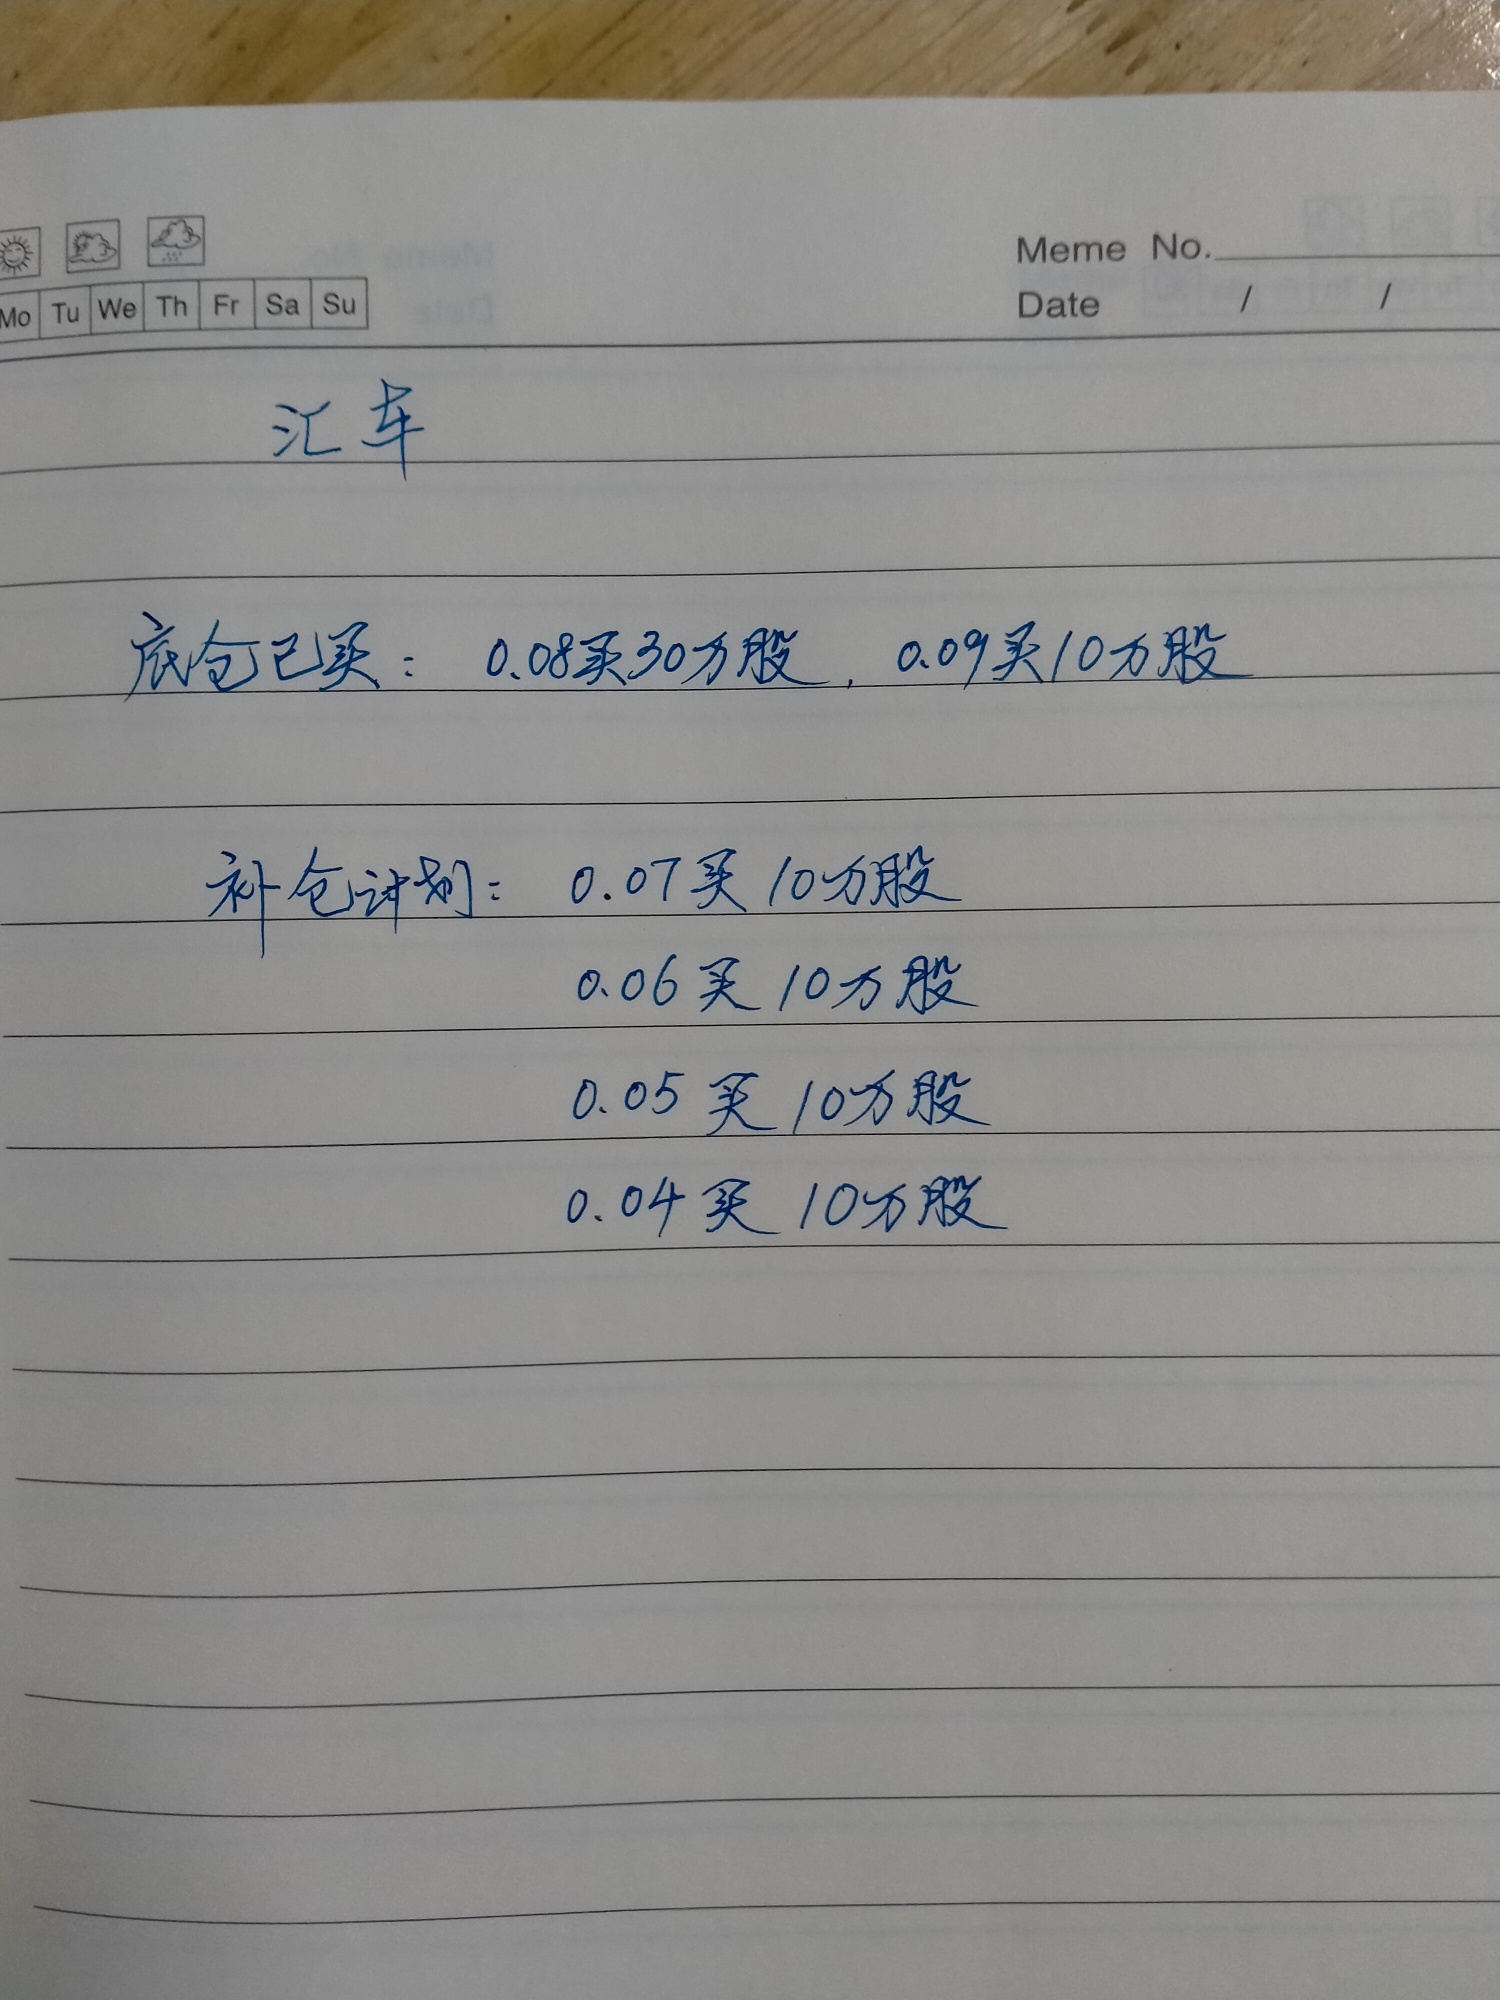 Meme No.
Mo Tu We Th Fr Sa Su
Date / /
汇车
底仓已买：0.08买30万股，0.09买10万股
补仓计划：0.07买10万股
0.06买10万股
0.05买10万股
0.04买10万股